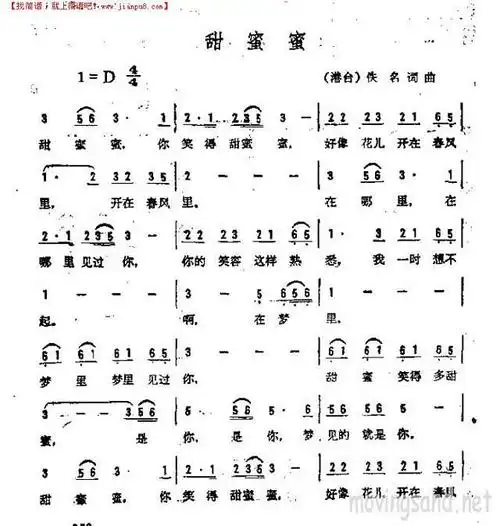 【找简谱,就上简谱吧!-www.jianpu8.com】
甜 蜜 蜜
1=D 4/4
（港台）佚 名 词 曲
3 56 3· 1 | 2·1 235 2 - | 22 23 21 65
甜 蜜 蜜, 你 笑得 甜蜜 蜜, 好像 花儿 开在 春风
1· 2 32 35 | 2 - - - | 3 56 3· 1
里, 开在 春风 里。 在 哪里, 在
2·1 235 3 - | 22 23 21 65 | 1· 1 21 65
哪里 见过 你, 你的 笑容 这样 熟 悉, 我 一时 想不
1 - - - | 3 - 5 656 | 1 - - -
起。 啊, 在 梦 里。
61 61 35 6 | 5 - - - | 61 61 35 65
梦里 梦里 见过 你, 甜 蜜 笑得 多甜
3 - - 356 | 5· 356 5· 3 | 22 23 5 -
蜜, 是 你, 是 你, 梦 见的 就是 你。
3 56 3· 1 | 2·1 235 2 - | 22 23 21 65
甜 蜜 蜜, 你 笑得 甜蜜 蜜, 好像 花儿 开在 春风
movingsand.net